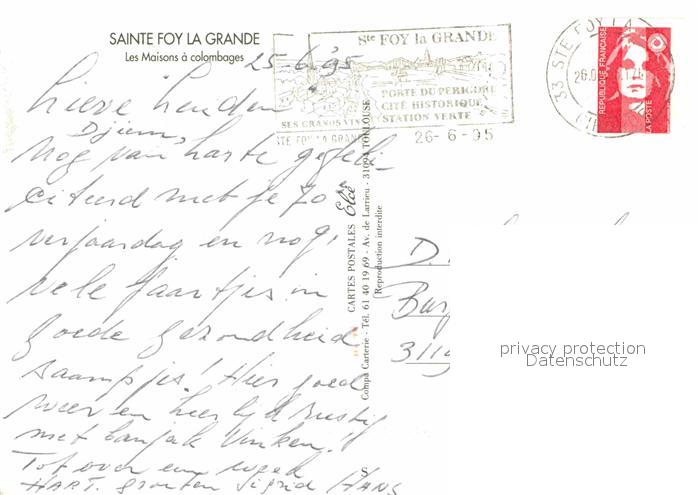 SAINTE FOY LA GRANDE
Les Maisons à colombages
25-6-'95
Lieve
Djiem,
nog van harte gefeli-
citeerd met je 70e
verjaardag en nog
vele jaartjes in
goede gezondheid
saampjes! Hier goed
weer en heerlijk rustig
met banjak Vinken!!
Tot over een week
HART. groeten Sigrid / HANS
Ste FOY la GRANDE
PORTE DU PERIGORD
CITÉ HISTORIQUE
STATION VERTE
SES GRANDS VINS
STE FOY LA GRANDE
26-6-95
33 STE FOY LA
REPUBLIQUE FRANÇAISE
LA POSTE
CARTES POSTALES Elcé
Compa Carterie - Tél. 61 40 19 69 - Av. de Larrieu - 31094 TOULOUSE
Reproduction interdite
D.
Bur
311
privacy protection
Datenschutz